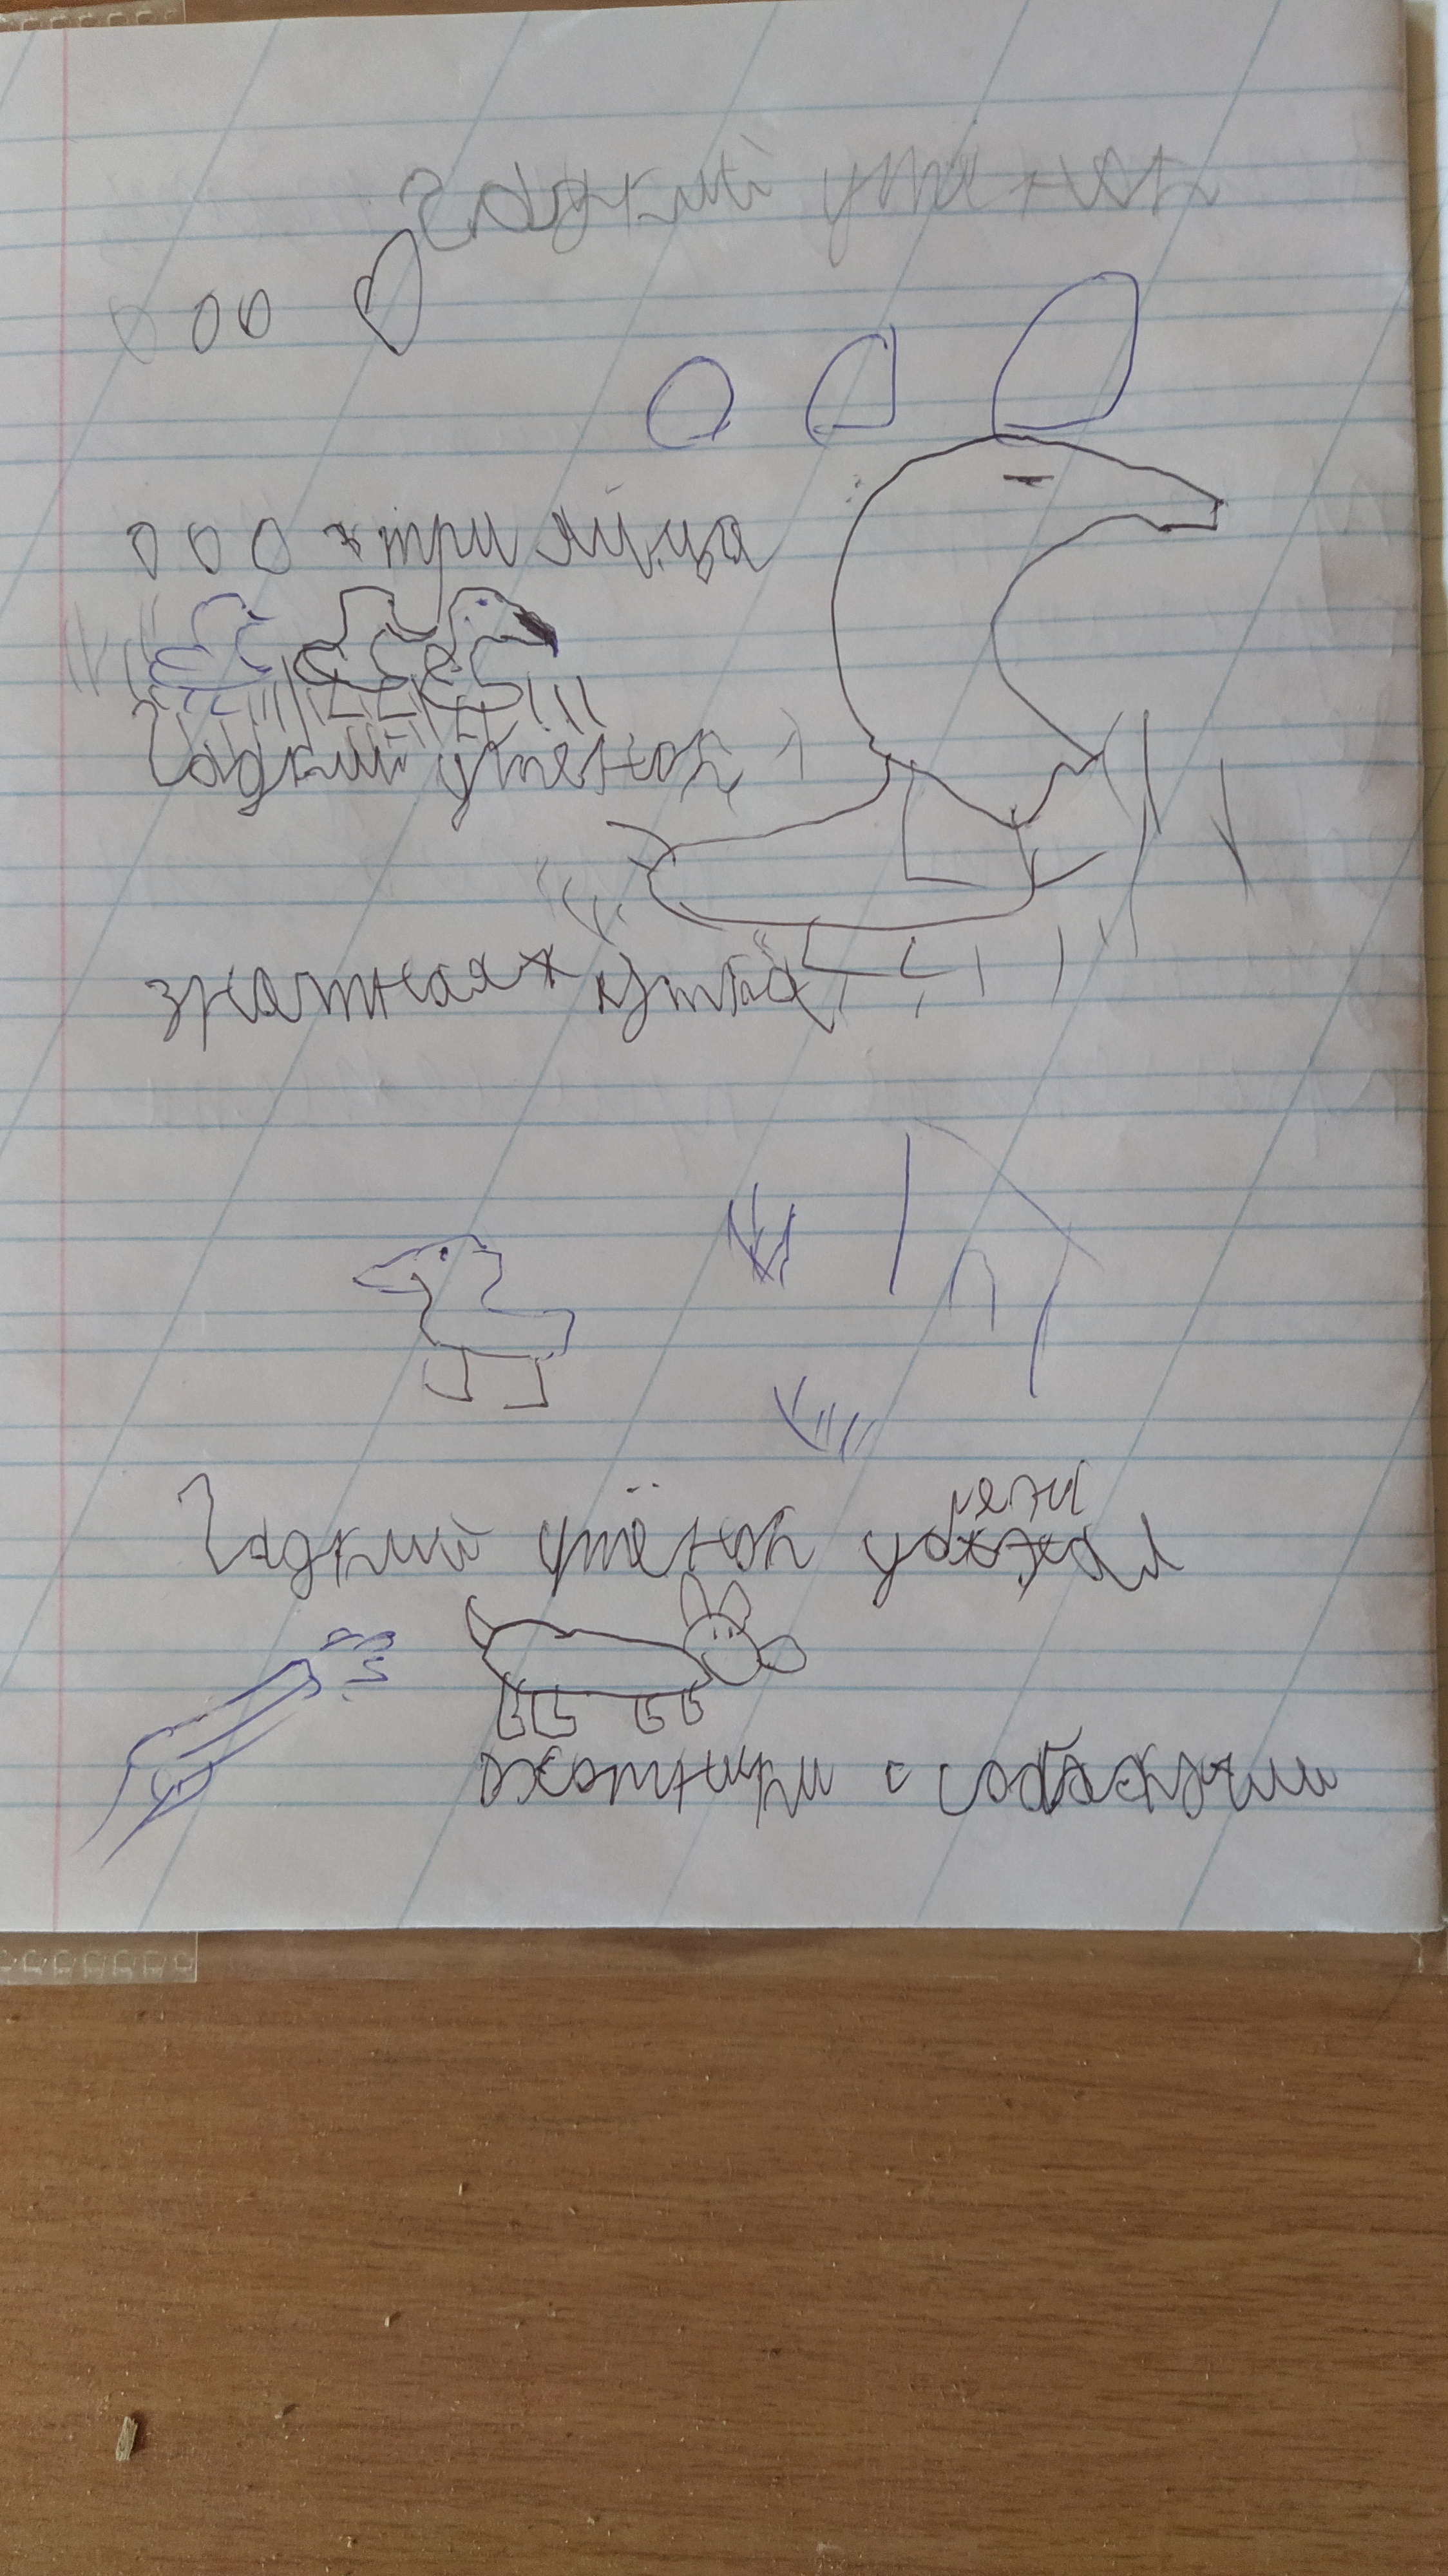 Гадкий утёнок
три яйца
Гадкий утёнок
знатная утка
Гадкий утёнок убежал
охотники с собаками